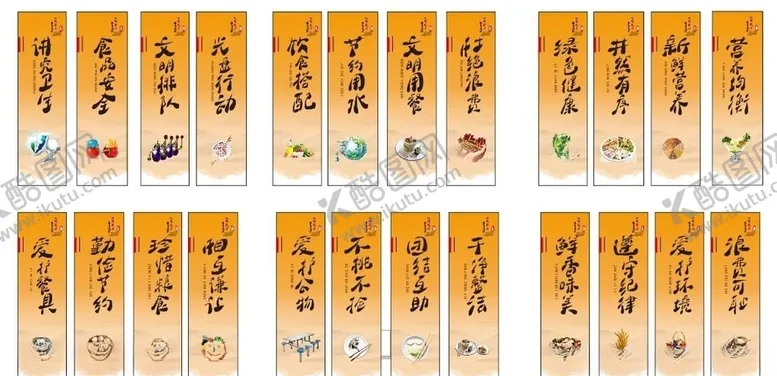 讲究卫生
食品安全
文明排队
光盘行动
饮食搭配
节约用水
文明用餐
杜绝浪费
绿色健康
井然有序
新鲜营养
营养均衡
爱护餐具
勤俭节约
珍惜粮食
相互谦让
爱护公物
不挑不捡
团结互助
干净整洁
鲜香味美
遵守纪律
爱护环境
浪费可耻
酷图网
www.ikutu.com